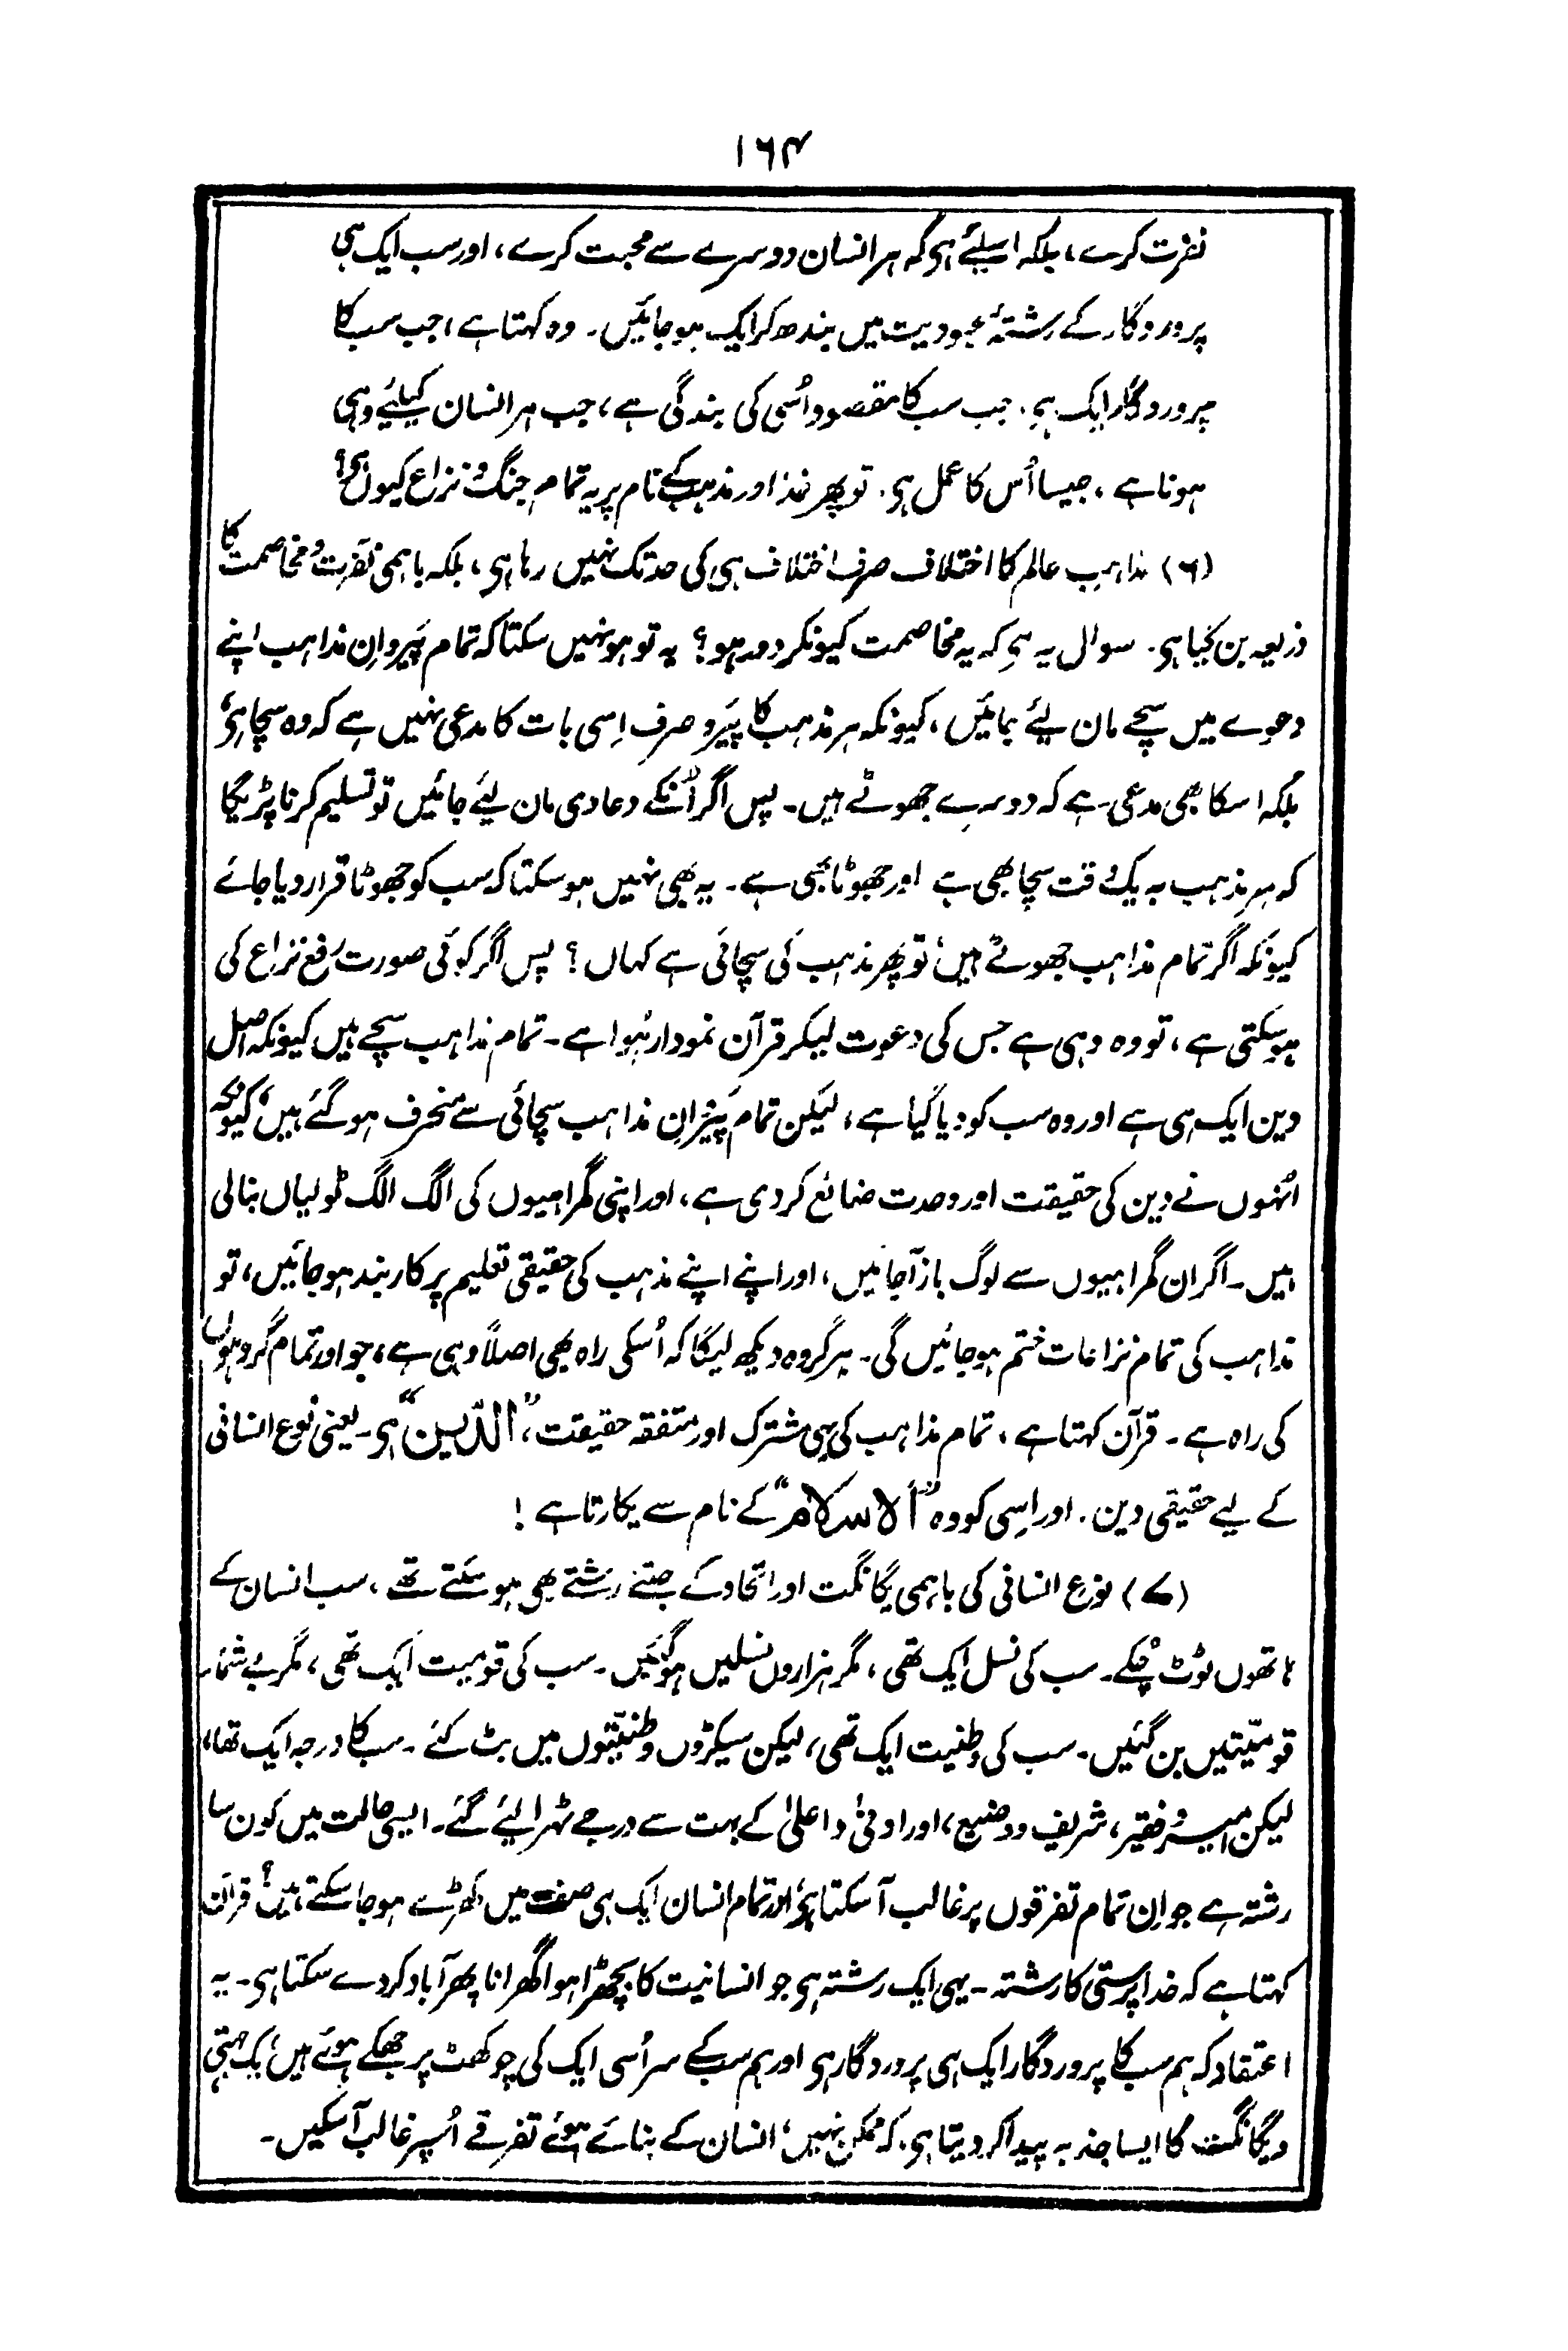 ۱۶۴
نفرت کرے، بلکہ اسلئے ہی کہ ہر انسان دوسرے سے محبت کرے، اور سب ایک ہی
پروردگار کے رشتۂ عبودیت میں بندھ کر ایک ہو جائیں۔ وہ کہتا ہے، جب سب کا
پروردگار ایک ہی، جب سب کا مقصود اُسی کی بندگی ہے، جب ہر انسان کیلئے وہی
ہونا ہے، جیسا اُس کا عمل ہی۔ تو پھر خدا اور مذہب کے نام پر یہ تمام جنگ و نزاع کیوں ہی؟
(۶) مذاہب عالم کا اختلاف صرف اختلاف ہی کی حد تک نہیں رہا ہی، بلکہ باہمی نفرت و مخاصمت کا
ذریعہ بن گیا ہی۔ سوال یہ ہی کہ یہ مخاصمت کیونکر دور ہو؟ یہ تو ہو نہیں سکتا کہ تمام پیروانِ مذاہب اپنے
دعوے میں سچے مان لیے جائیں، کیونکہ ہر مذہب کا پیرو صرف اِسی بات کا مدعی نہیں ہے کہ وہ سچا ہی،
بلکہ اسکا بھی مدعی ہے کہ دوسرے جھوٹے ہیں۔ پس اگر اُنکے دعاوی مان لیئے جائیں تو تسلیم کرنا پڑیگا
کہ ہر مذہب بہ یک وقت سچا بھی ہے اور جھوٹا بھی ہے۔ یہ بھی نہیں ہو سکتا کہ سب کو جھوٹا قرار دیا جائے
کیونکہ اگر تمام مذاہب جھوٹے ہیں، تو پھر مذہب کی سچائی ہے کہاں؟ پس اگر کوئی صورت رفع نزاع کی
ہو سکتی ہے، تو وہ وہی ہے جس کی دعوت لیکر قرآن نمودار ہوا ہے۔ تمام مذاہب سچے ہیں کیونکہ اصل
دین ایک ہی ہے اور وہ سب کو دیا گیا ہے، لیکن تمام پیروانِ مذاہب سچائی سے منحرف ہو گئے ہیں، کیونکہ
انہوں نے دین کی حقیقت اور وحدت ضائع کر دی ہے، اور اپنی گمراہیوں کی الگ الگ ٹولیاں بنا لی
ہیں۔ اگر ان گمراہیوں سے لوگ باز آجائیں، اور اپنے اپنے مذہب کی حقیقی تعلیم پر کاربند ہو جائیں، تو
مذاہب کی تمام نزاعات ختم ہو جائیں گی۔ ہر گروہ دیکھ لیگا کہ اُسکی راہ بھی اصلاً وہی ہے، جو اور تمام گروہوں
کی راہ ہے۔ قرآن کہتا ہے، تمام مذاہب کی یہی مشترک اور متفقہ حقیقت، "الدّین" ہی۔ یعنی نوع انسانی
کے لیے حقیقی دین۔ اور اِسی کو وہ "الاسلام" کے نام سے پکارتا ہے!
(۷) نوع انسانی کی باہمی یگانگت اور اتحاد کے جتنے رشتے بھی ہو سکتے تھے، سب انسان کے
ہاتھوں ٹوٹ چکے۔ سب کی نسل ایک تھی، مگر ہزاروں نسلیں ہو گئیں۔ سب کی قومیت ایک تھی، مگر بے شمار
قومیّتیں بن گئیں۔ سب کی وطنیت ایک تھی، لیکن سیکڑوں وطنیّتوں میں بٹ گئے۔ سب کا درجہ ایک تھا،
لیکن امیر و فقیر، شریف و وضیع، اور ادنیٰ و اعلیٰ کے بہت سے درجے ٹہرا لیئے گئے۔ ایسی حالت میں کون سا
رشتہ ہے جو اِن تمام تفرقوں پر غالب آ سکتا ہی، اور تمام انسان ایک ہی صف میں کھڑے ہو جا سکتے ہیں؟ قرآن
کہتا ہے کہ خدا پرستی کا رشتہ۔ یہی ایک رشتہ ہی جو انسانیت کا بچھڑا ہوا گھرانا پھر آباد کر دے سکتا ہی۔ یہ
اعتقاد کہ ہم سب کا پروردگار ایک ہی پروردگار ہی اور ہم سب کے سر اُسی ایک کی چوکھٹ پر جھکے ہوئے ہیں، یک جہتی
و یگانگت کا ایسا جذبہ پیدا کر دیتا ہی، کہ ممکن نہیں، انسان کے بنائے ہوئے تفرقے اُسپر غالب آ سکیں۔